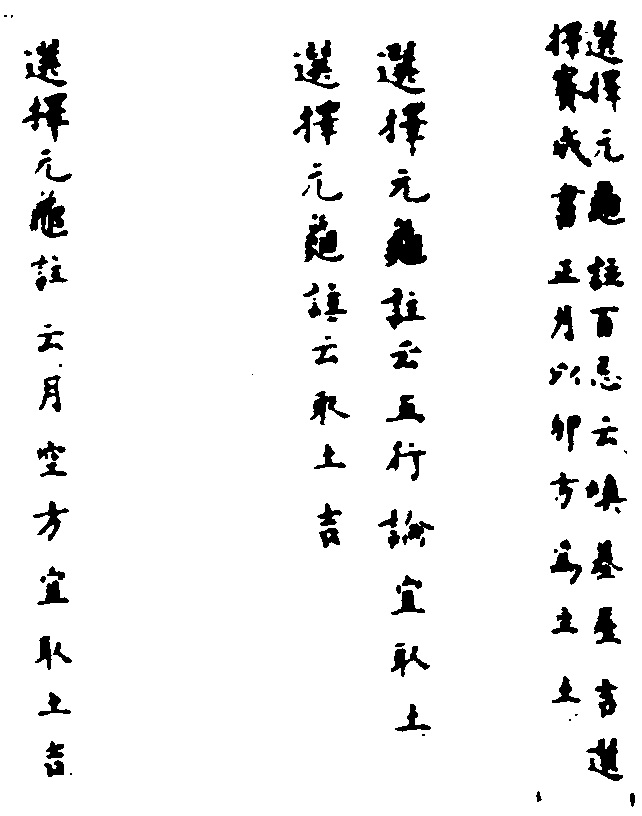 選擇元龜註百忌云填墓塋吉選
擇賽成書正月以卯方爲土土
選擇元龜註云五行論宜取土
選擇元龜註云取土吉
選擇元龜註云月空方宜取土吉